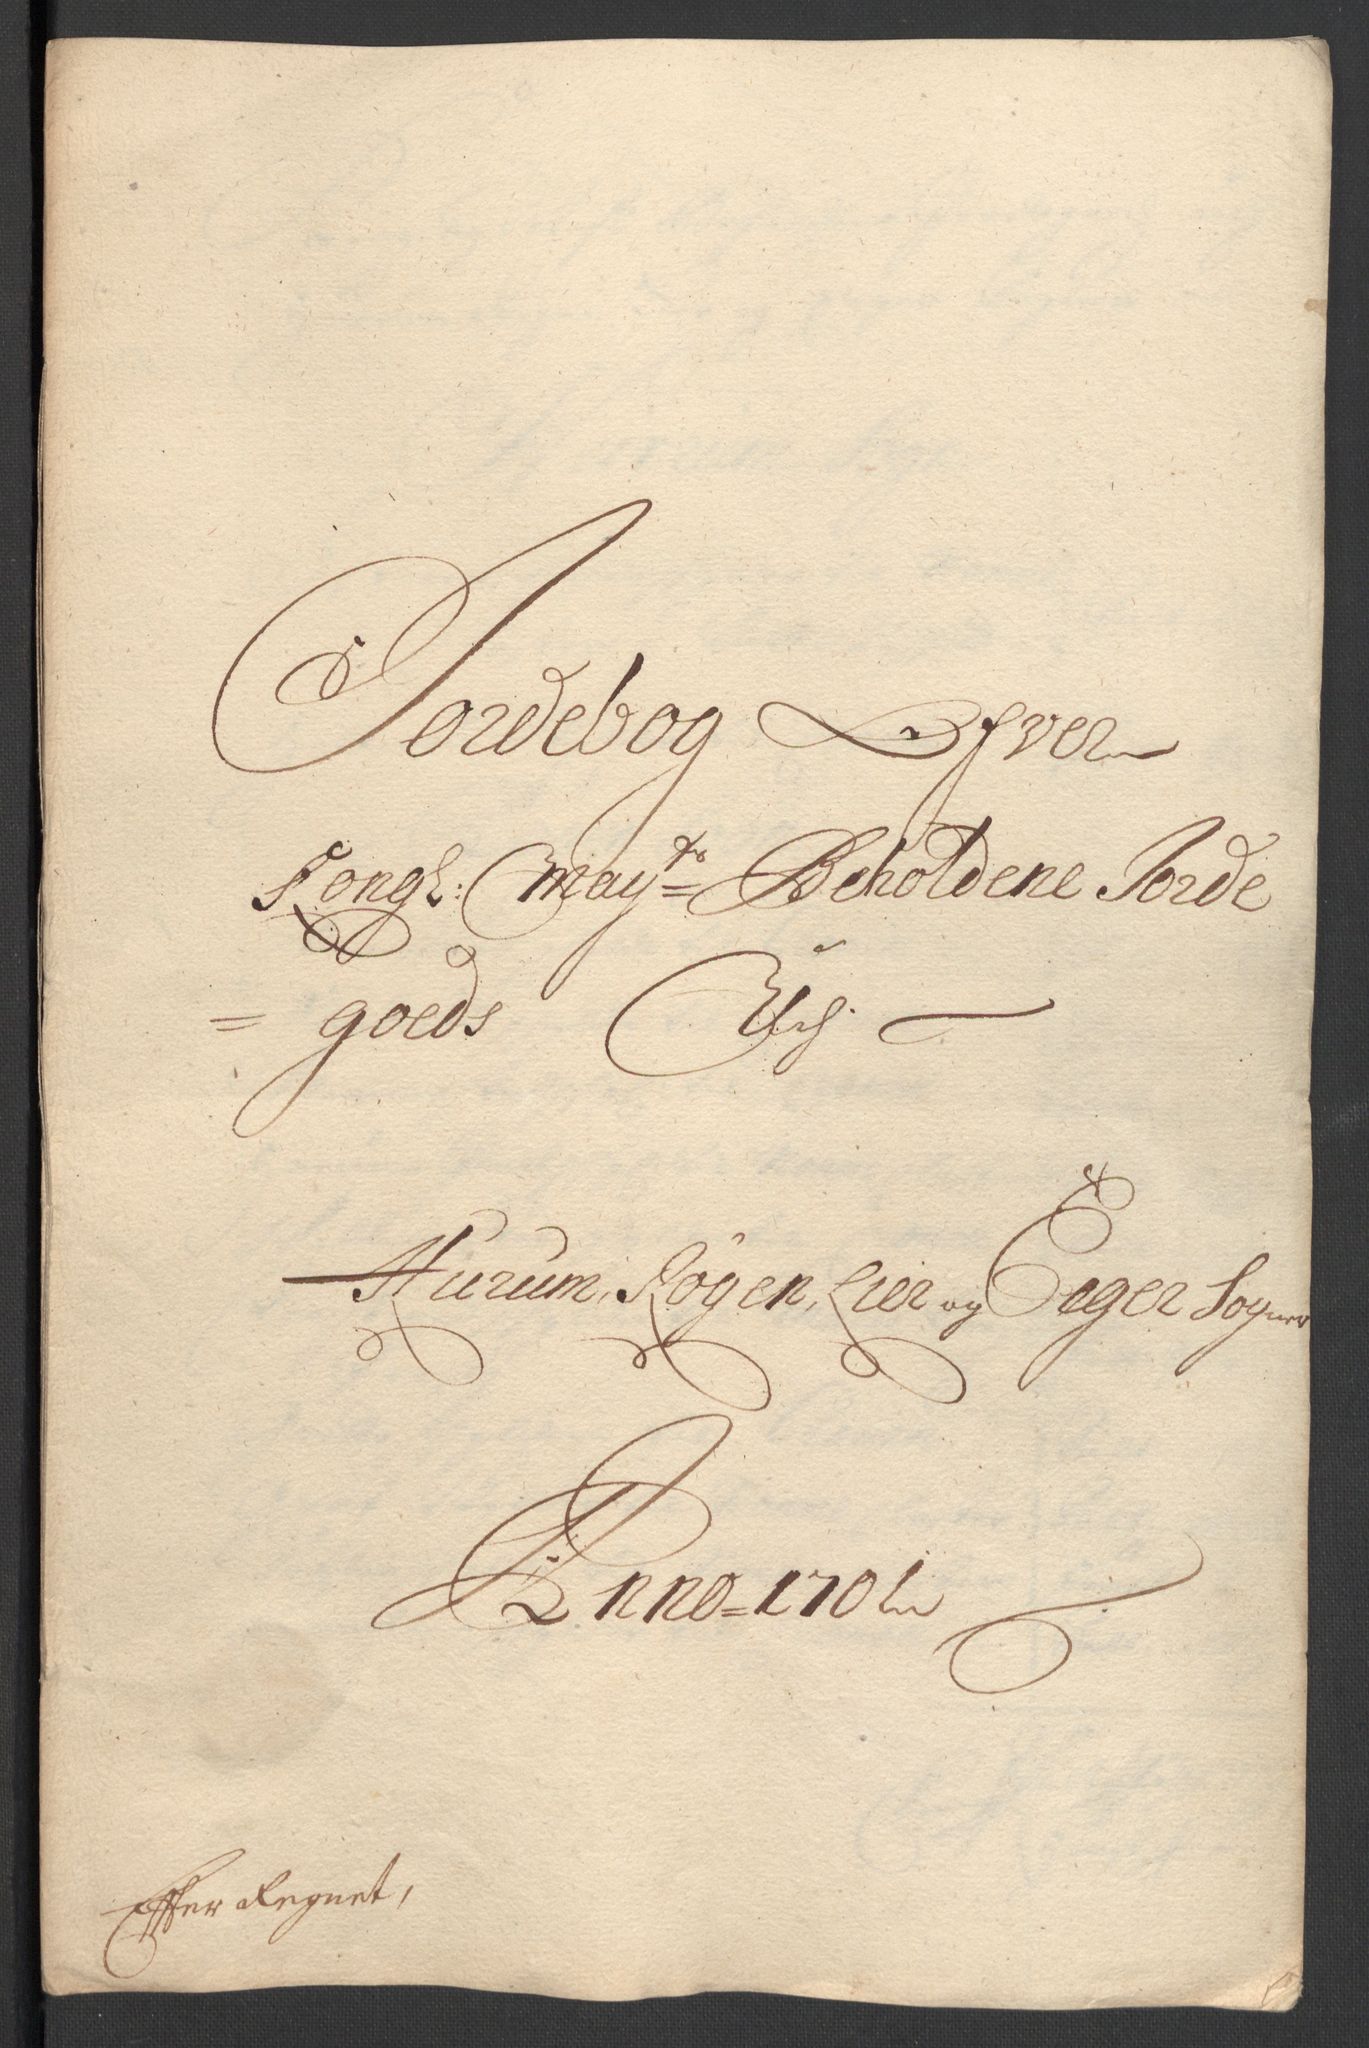 Jordebog Ofver
Kongl: Mayts= Beholdene Jorde
= goeds Udj
Hurum, Røgen, Lier og Eger Sogner
Anno=1701
Effter Regnet,